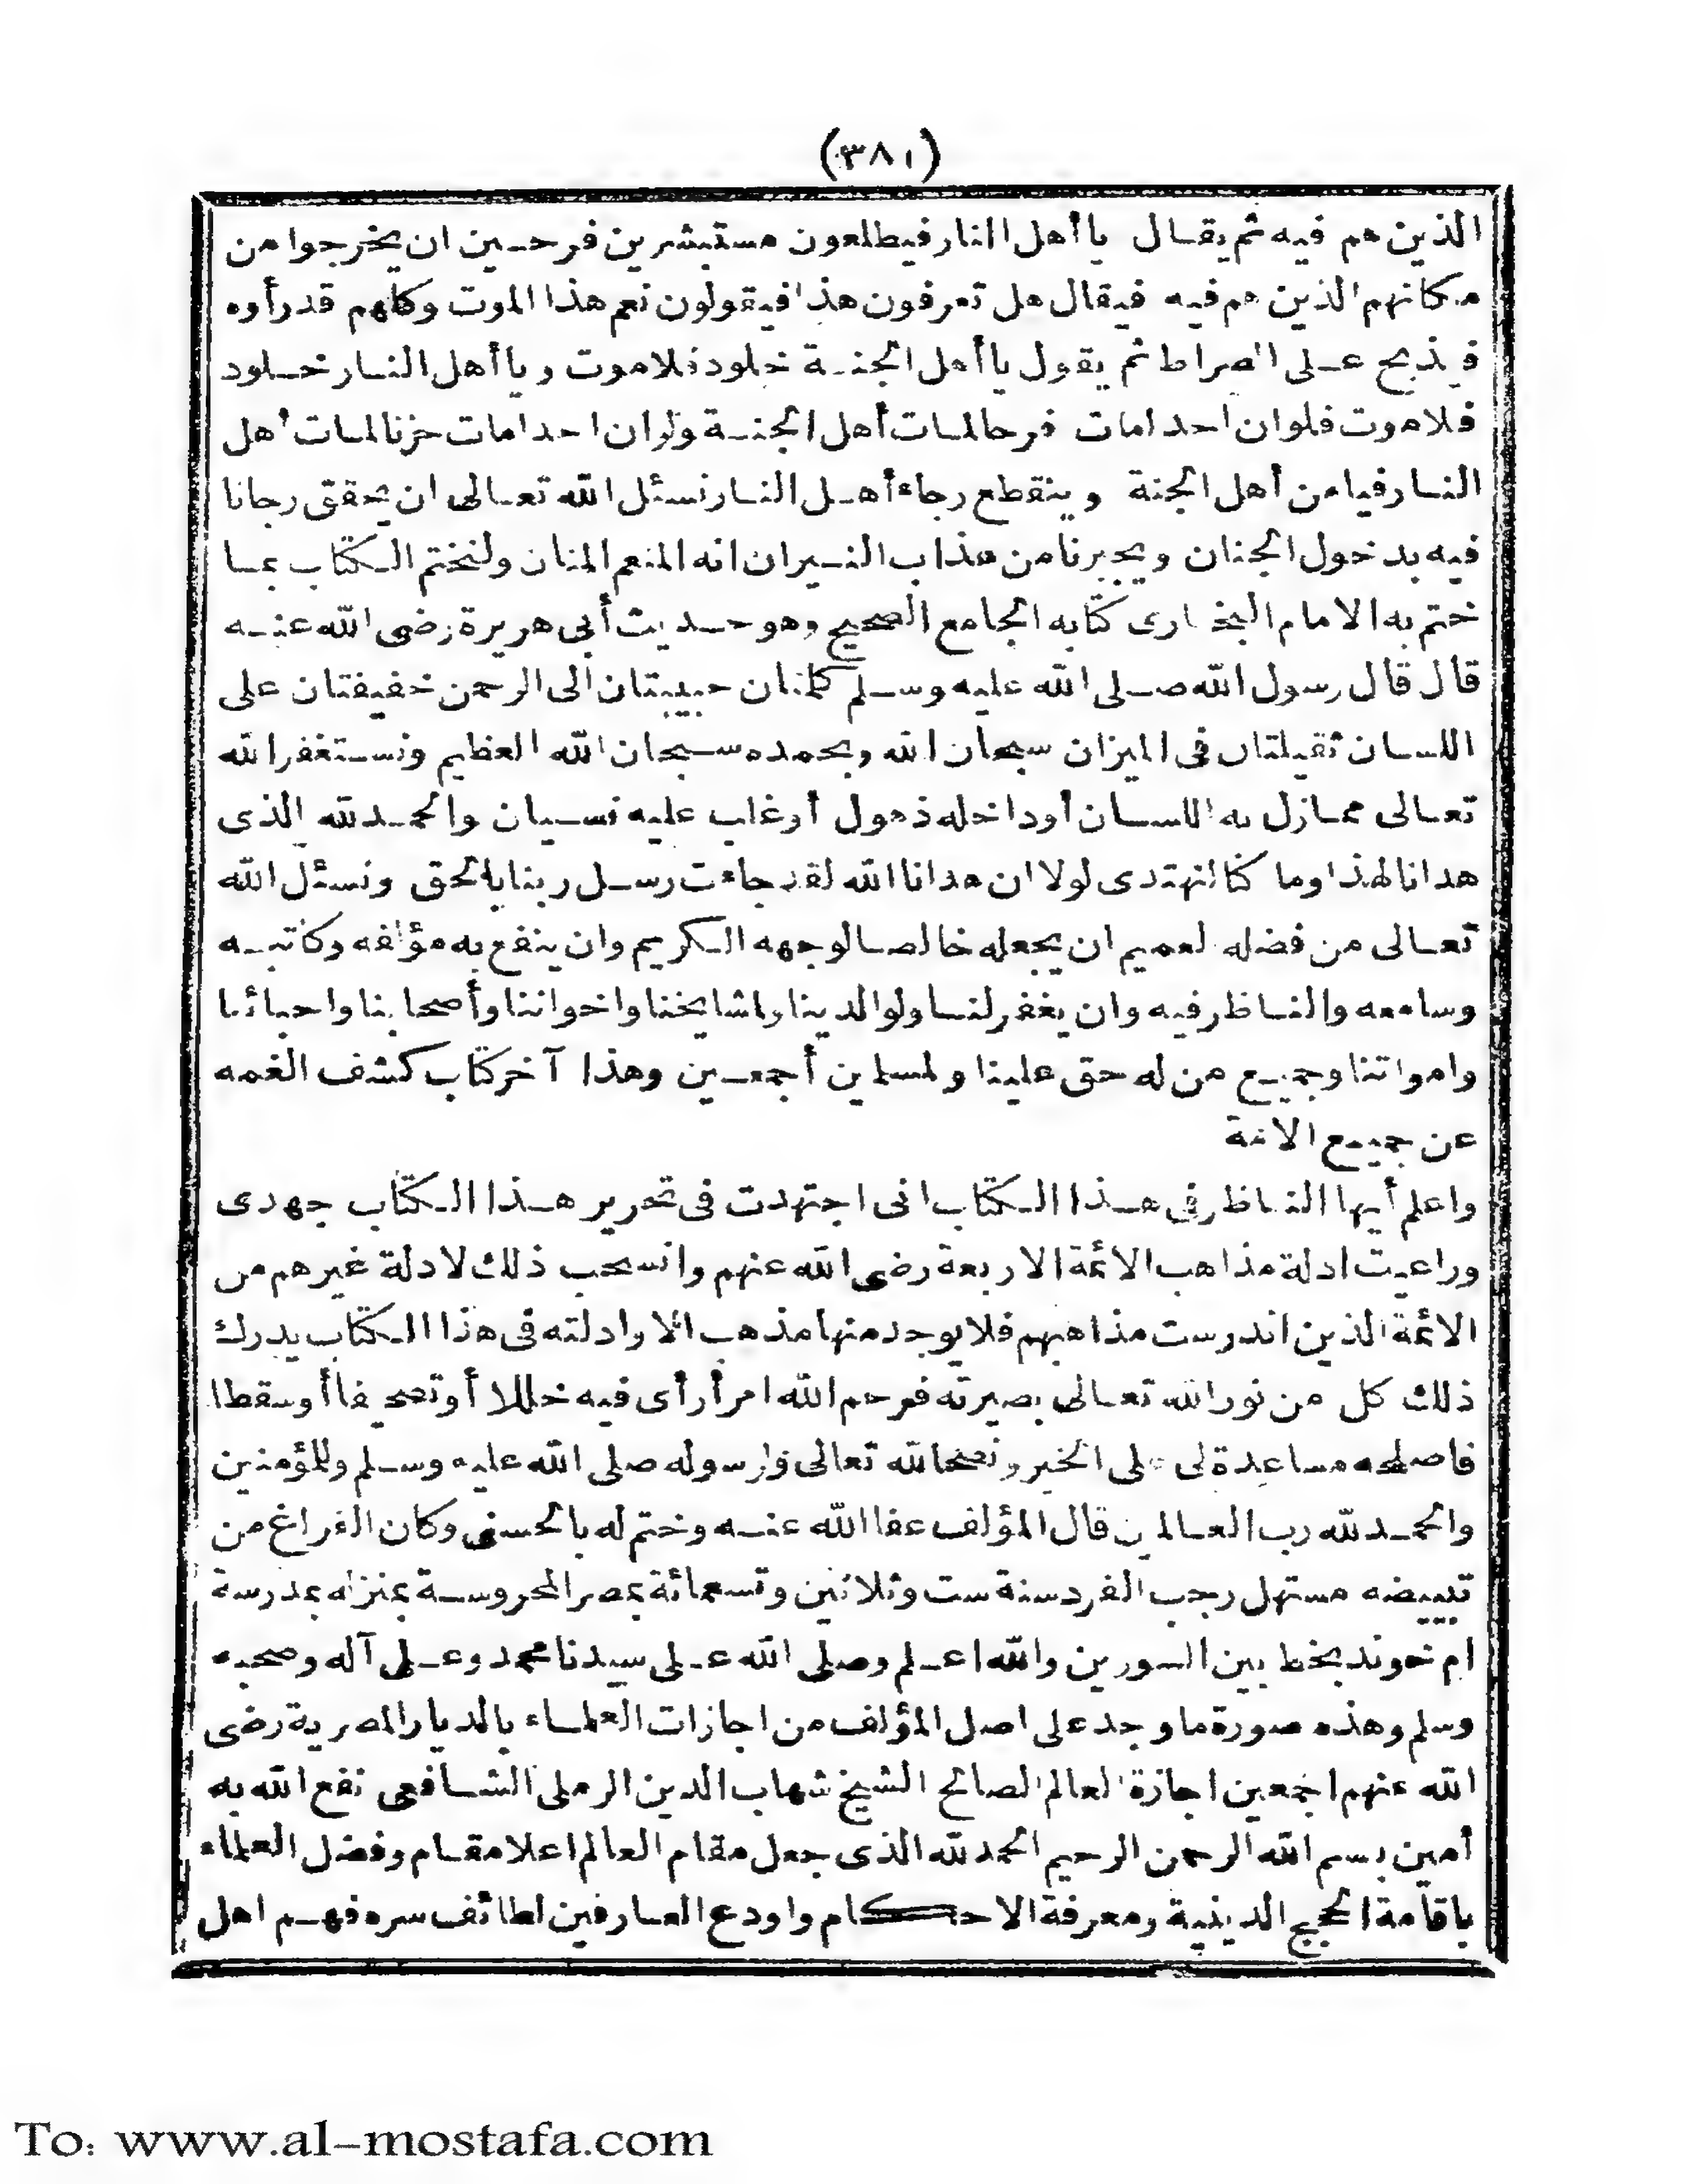 (٣٨١)
الذين هم فيه ثم يقال يا أهل النار فيطلعون مستبشرين فرحين ان يخرجوا من
مكانهم الذين هم فيه فيقال هل تعرفون هذا فيقولون نعم هذا الموت وكلهم قد رأوه
فيذبح على الصراط ثم يقول يا أهل الجنة خلود فلا موت ويا أهل النار خلود
فلا موت فلو ان احدا مات فرحا لمات أهل الجنة ولو ان احدا مات حزنا لمات أهل
النار فيا من أهل الجنة وينقطع رجاء أهل النار نسئل الله تعالى ان يحقق رجانا
فيه بدخول الجنان ويجيرنا من عذاب النيران انه المنعم المنان ولنختم الكتاب بما
ختم به الامام البخارى كتابه الجامع الصحيح وهو حديث أبى هريرة رضى الله عنه
قال قال رسول الله صلى الله عليه وسلم كلمتان حبيبتان الى الرحمن خفيفتان على
اللسان ثقيلتان فى الميزان سبحان الله وبحمده سبحان الله العظيم ونستغفر الله
تعالى مما زل به اللسان أو داخله ذهول أو غاب عليه نسيان والحمد لله الذى
هدانا لهذا وما كنا لنهتدى لولا ان هدانا الله لقد جاءت رسل ربنا بالحق ونسئل الله
تعالى من فضله لعميم ان يجعله خالصا لوجهه الكريم وان ينفع به مؤلفه وكاتبه
وسامعه والناظر فيه وان يغفر لنا ولوالدينا واشايخنا واخواننا وأصحابنا واحبائنا
وامواتنا وجميع من له حق علينا ولمسلمين أجمعين وهذا آخر كتاب كشف الغمه
عن جميع الامة
واعلم أيها الناظر فى هذا الكتاب انى اجتهدت فى تحرير هذا الكتاب جهدى
وراعيت ادلة مذاهب الائمة الاربعة رضى الله عنهم وانسحب ذلك لادلة غيرهم من
الائمة الذين اندرست مذاهبهم فلا يوجد منها مذهب الا وادلته فى هذا الكتاب يدرك
ذلك كل من نور الله تعالى بصيرته فرحم الله امرأ رأى فيه خللا أو تصحيفا أو سقطا
فاصلحه مساعدة لى على الخير ونصحا لله تعالى ولرسوله صلى الله عليه وسلم وللمؤمنين
والحمد لله رب العالمين قال المؤلف عفا الله عنه وختم له بالحسنى وكان الفراغ من
تبييضه مستهل رجب الفرد سنة ست وثلاثين وتسعمائة بمصر المحروسة بمنزله بمدرسة
ام خوند بخط بين السورين والله اعلم وصلى الله على سيدنا محمد وعلى آله وصحبه
وسلم وهذه صورة ما وجد على اصل المؤلف من اجازات العلماء بالديار المصرية رضى
الله عنهم اجمعين اجازة العالم الصالح الشيخ شهاب الدين الرملى الشافعى نفع الله به
أمين بسم الله الرحمن الرحيم الحمد لله الذى جعل مقام العالم اعلا مقام وفضل العلماء
باقامة الحجج الدينية ومعرفة الاحكام واودع العارفين لطائف سره فهم اهل
To: www.al-mostafa.com